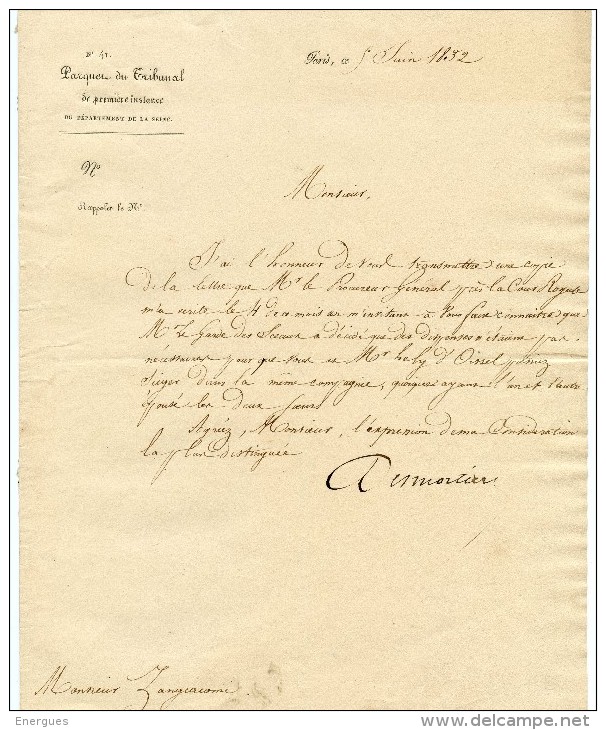 N° 41.
Paris, ce 5 Juin 1832
Parquet du Tribunal
de première instance
DU DÉPARTEMENT DE LA SEINE.
N°
Rappeler le N°.
Monsieur,
J'ai l'honneur de vous transmettre une copie
de la lettre que Mr le Procureur Général près la Cour Royale
m'a écrite le 4 de ce mois en m'invitant à vous faire connaitre que
Mr le Garde des Sceaux a décidé que des dispenses n'étaient pas
necessaires pour que vous et Mr d'Oissel
sieger dans la même compagnie, quoiques ayant l'un et l'autre
épousé les deux sœurs
Agréez, Monsieur, l'expression de ma Considération
la plus distinguée
Desmortiers
Monsieur Zangiacomi
Energues
www.delcampe.net